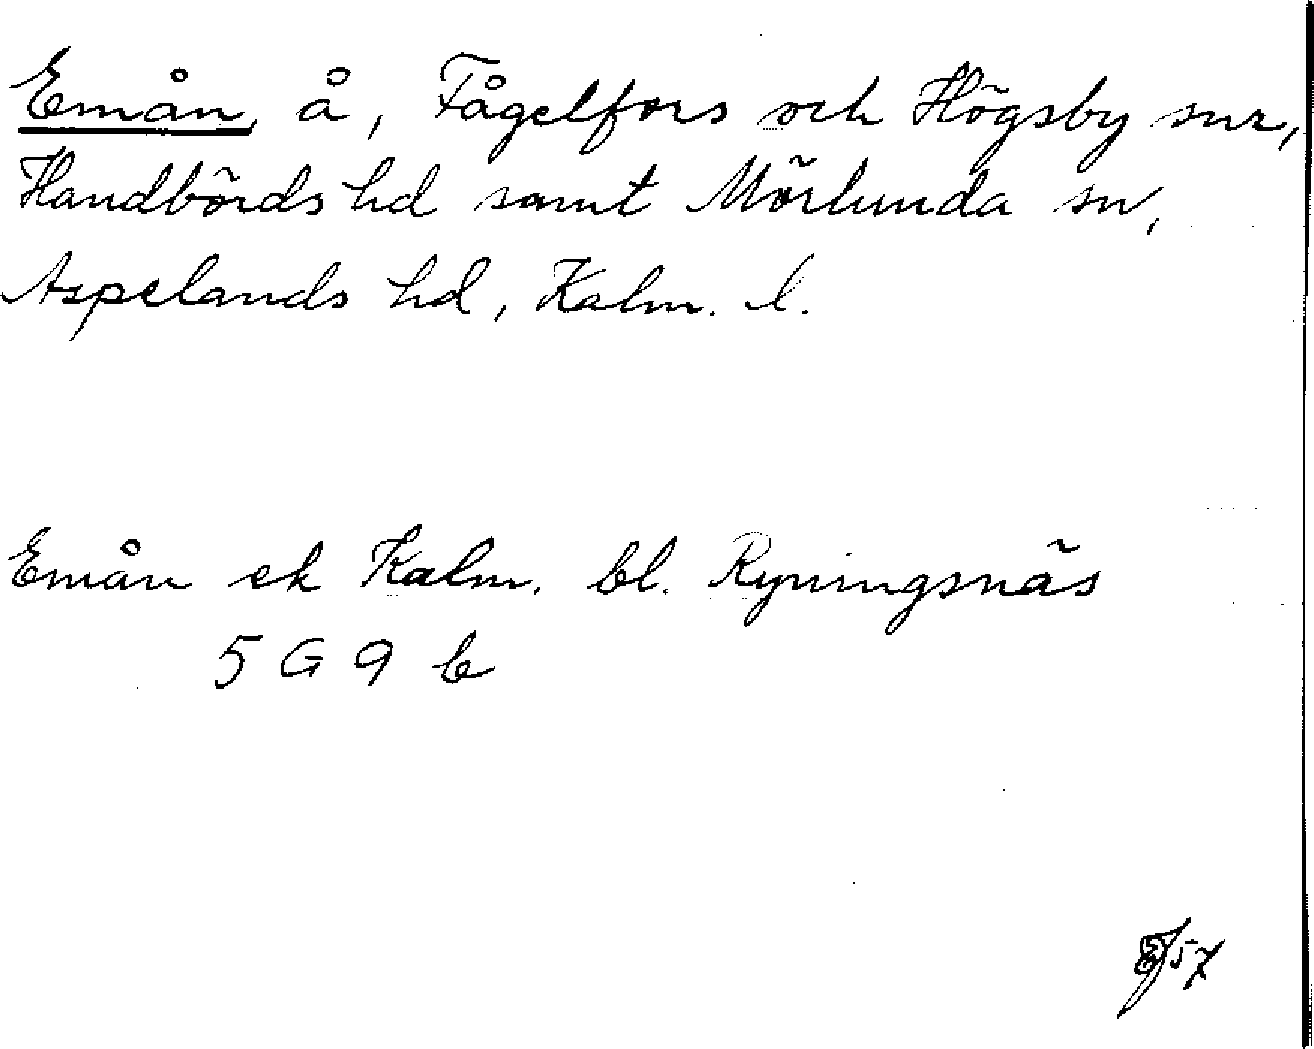 Emån, å, Fågelfors och Högsby snr,
Handbörds hd samt Mörlunda sn,
Aspelands hd, Kalm. l.
Emån ek Kalm. bl. Ryningsnäs
5 G 9 b
57